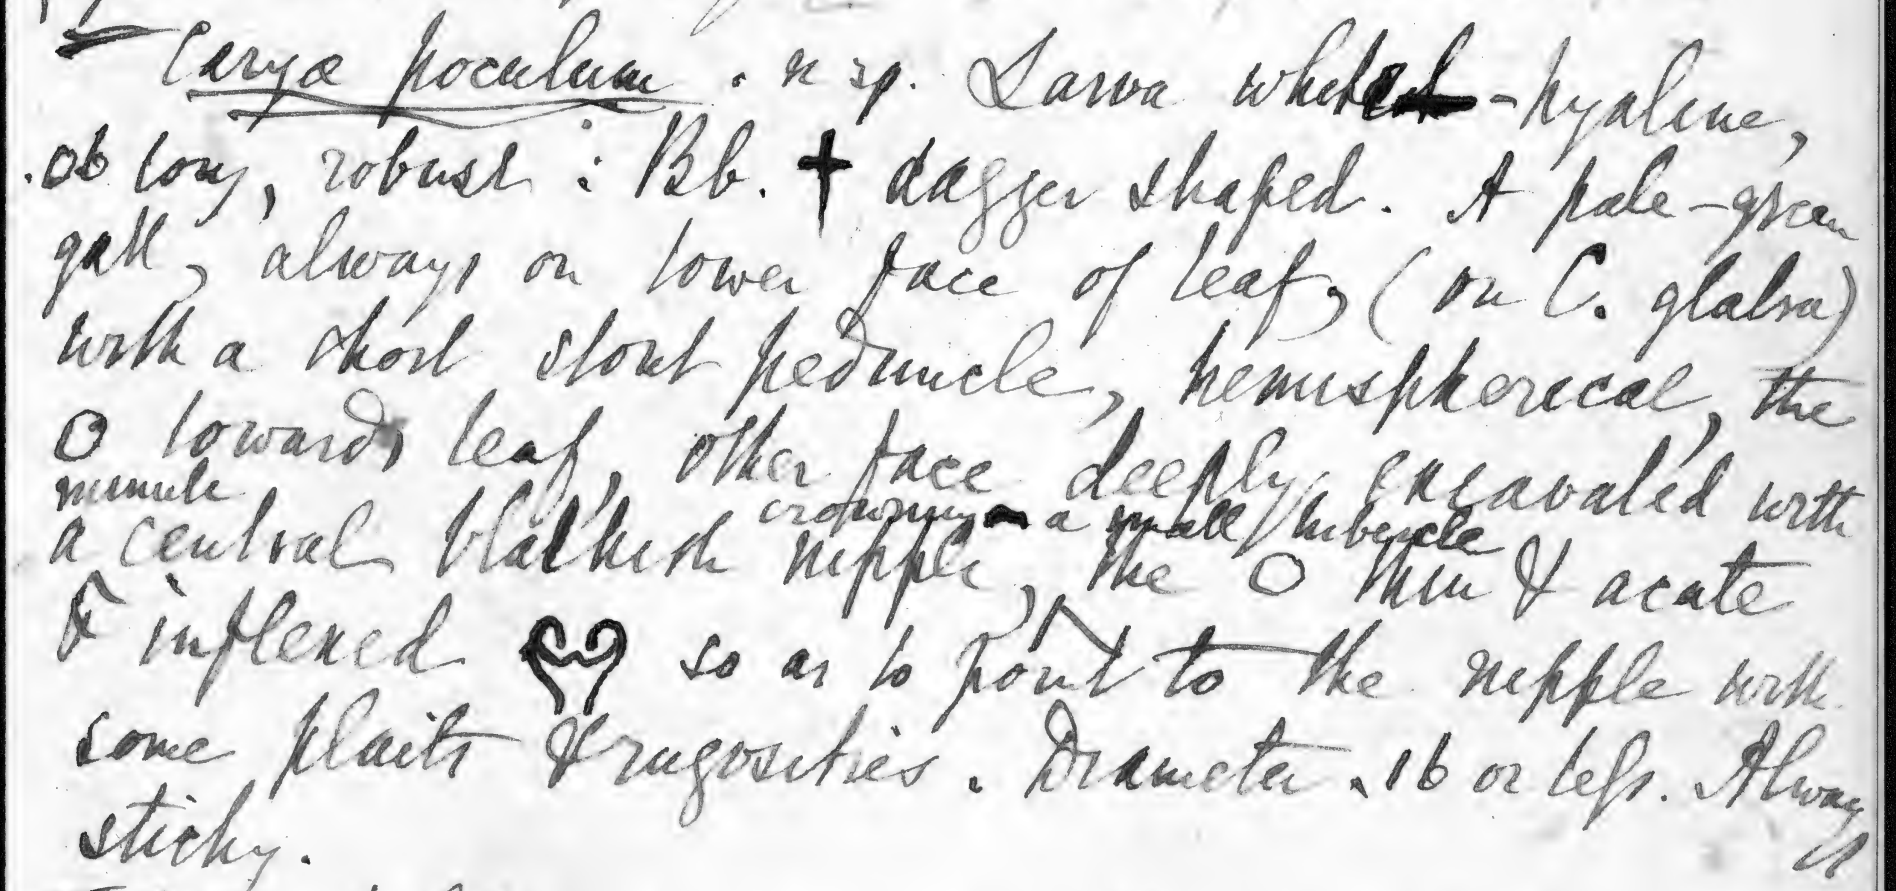 Caryæ poculum. n sp. Larva white-hyaline,
.06 long, robust: Bb. † dagger shaped. A pale-green
gall, always on lower face of leaf, (on C. glabra)
with a short stout peduncle, hemispherical, the
O towards leaf, other face deeply excavated with
minute crowning a small tubercle
a central blackish nipple, the O thin & acute
& inflexed so as to point to the nipple with
some plaits & rugosities. Diameter .16 or less. Always
sticky.